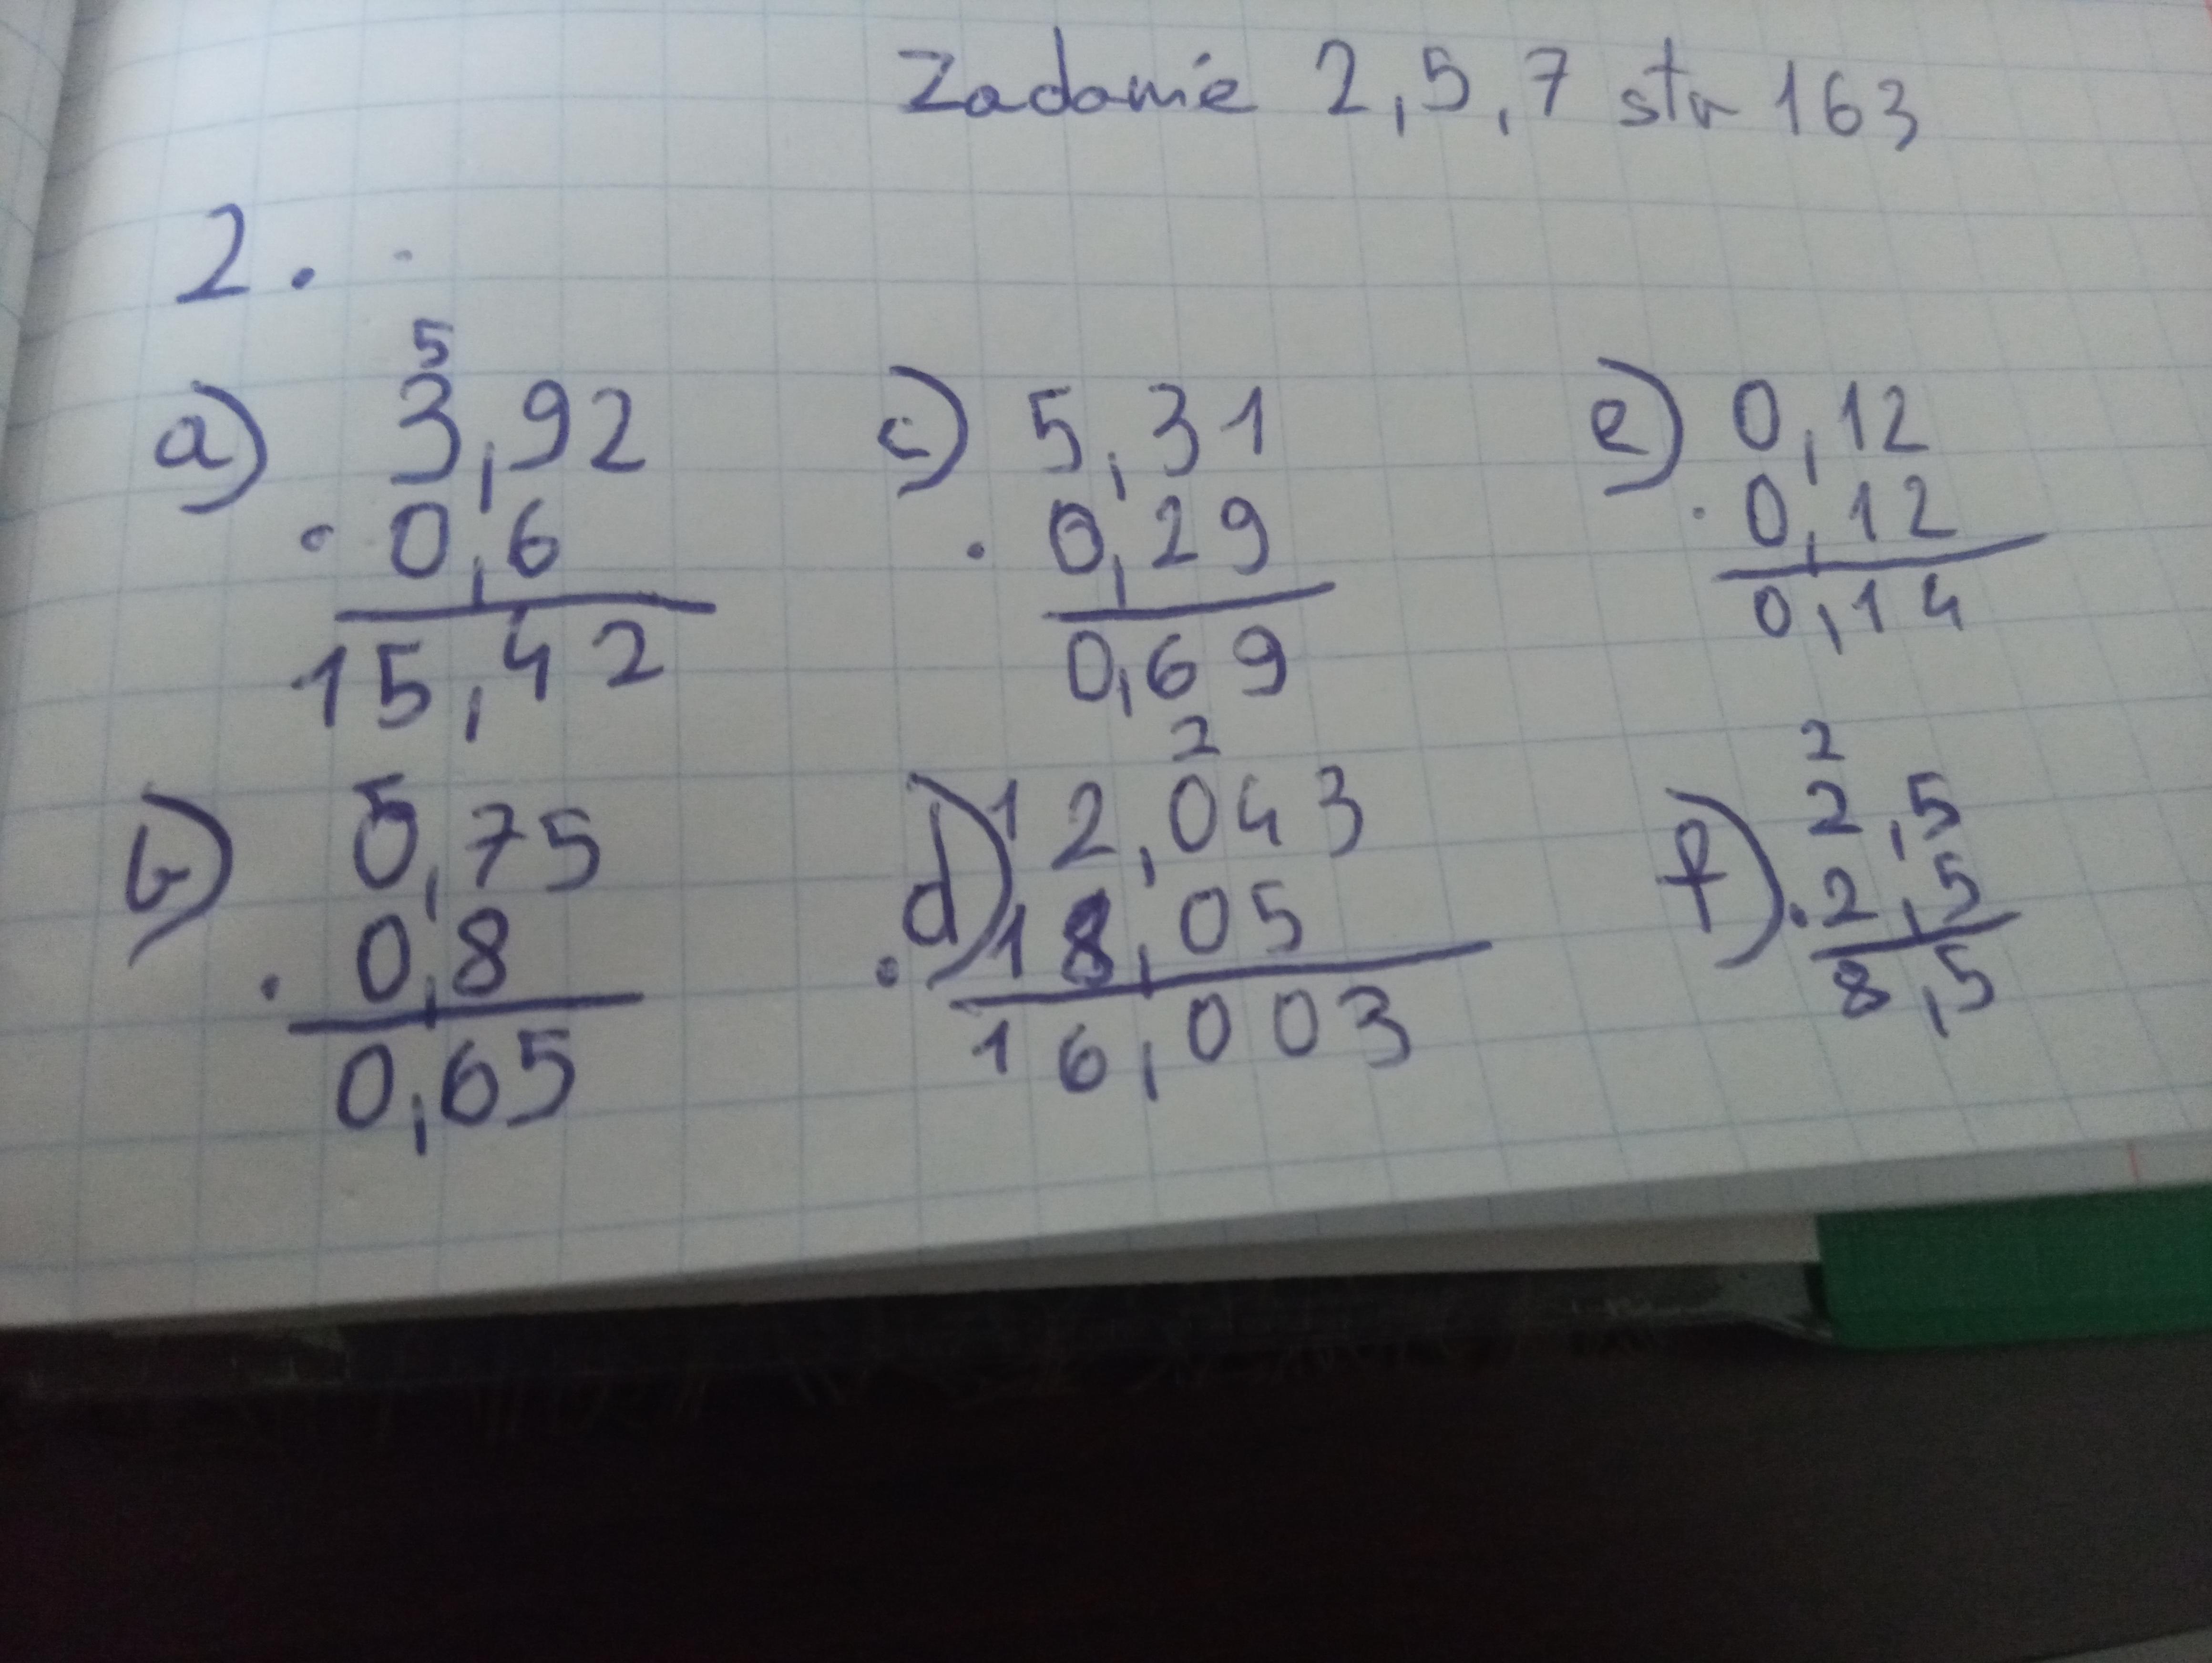 Zadanie 2,5,7 str 163
2.
a) 5
3,92
· 0,6
15,42
c) 5,31
· 0,29
0,69
e) 0,12
· 0,12
0,14
b) 0,75
· 0,8
0,65
d) 2
12,043
· 18,05
16,003
f) 2
2,5
· 2,5
8,5